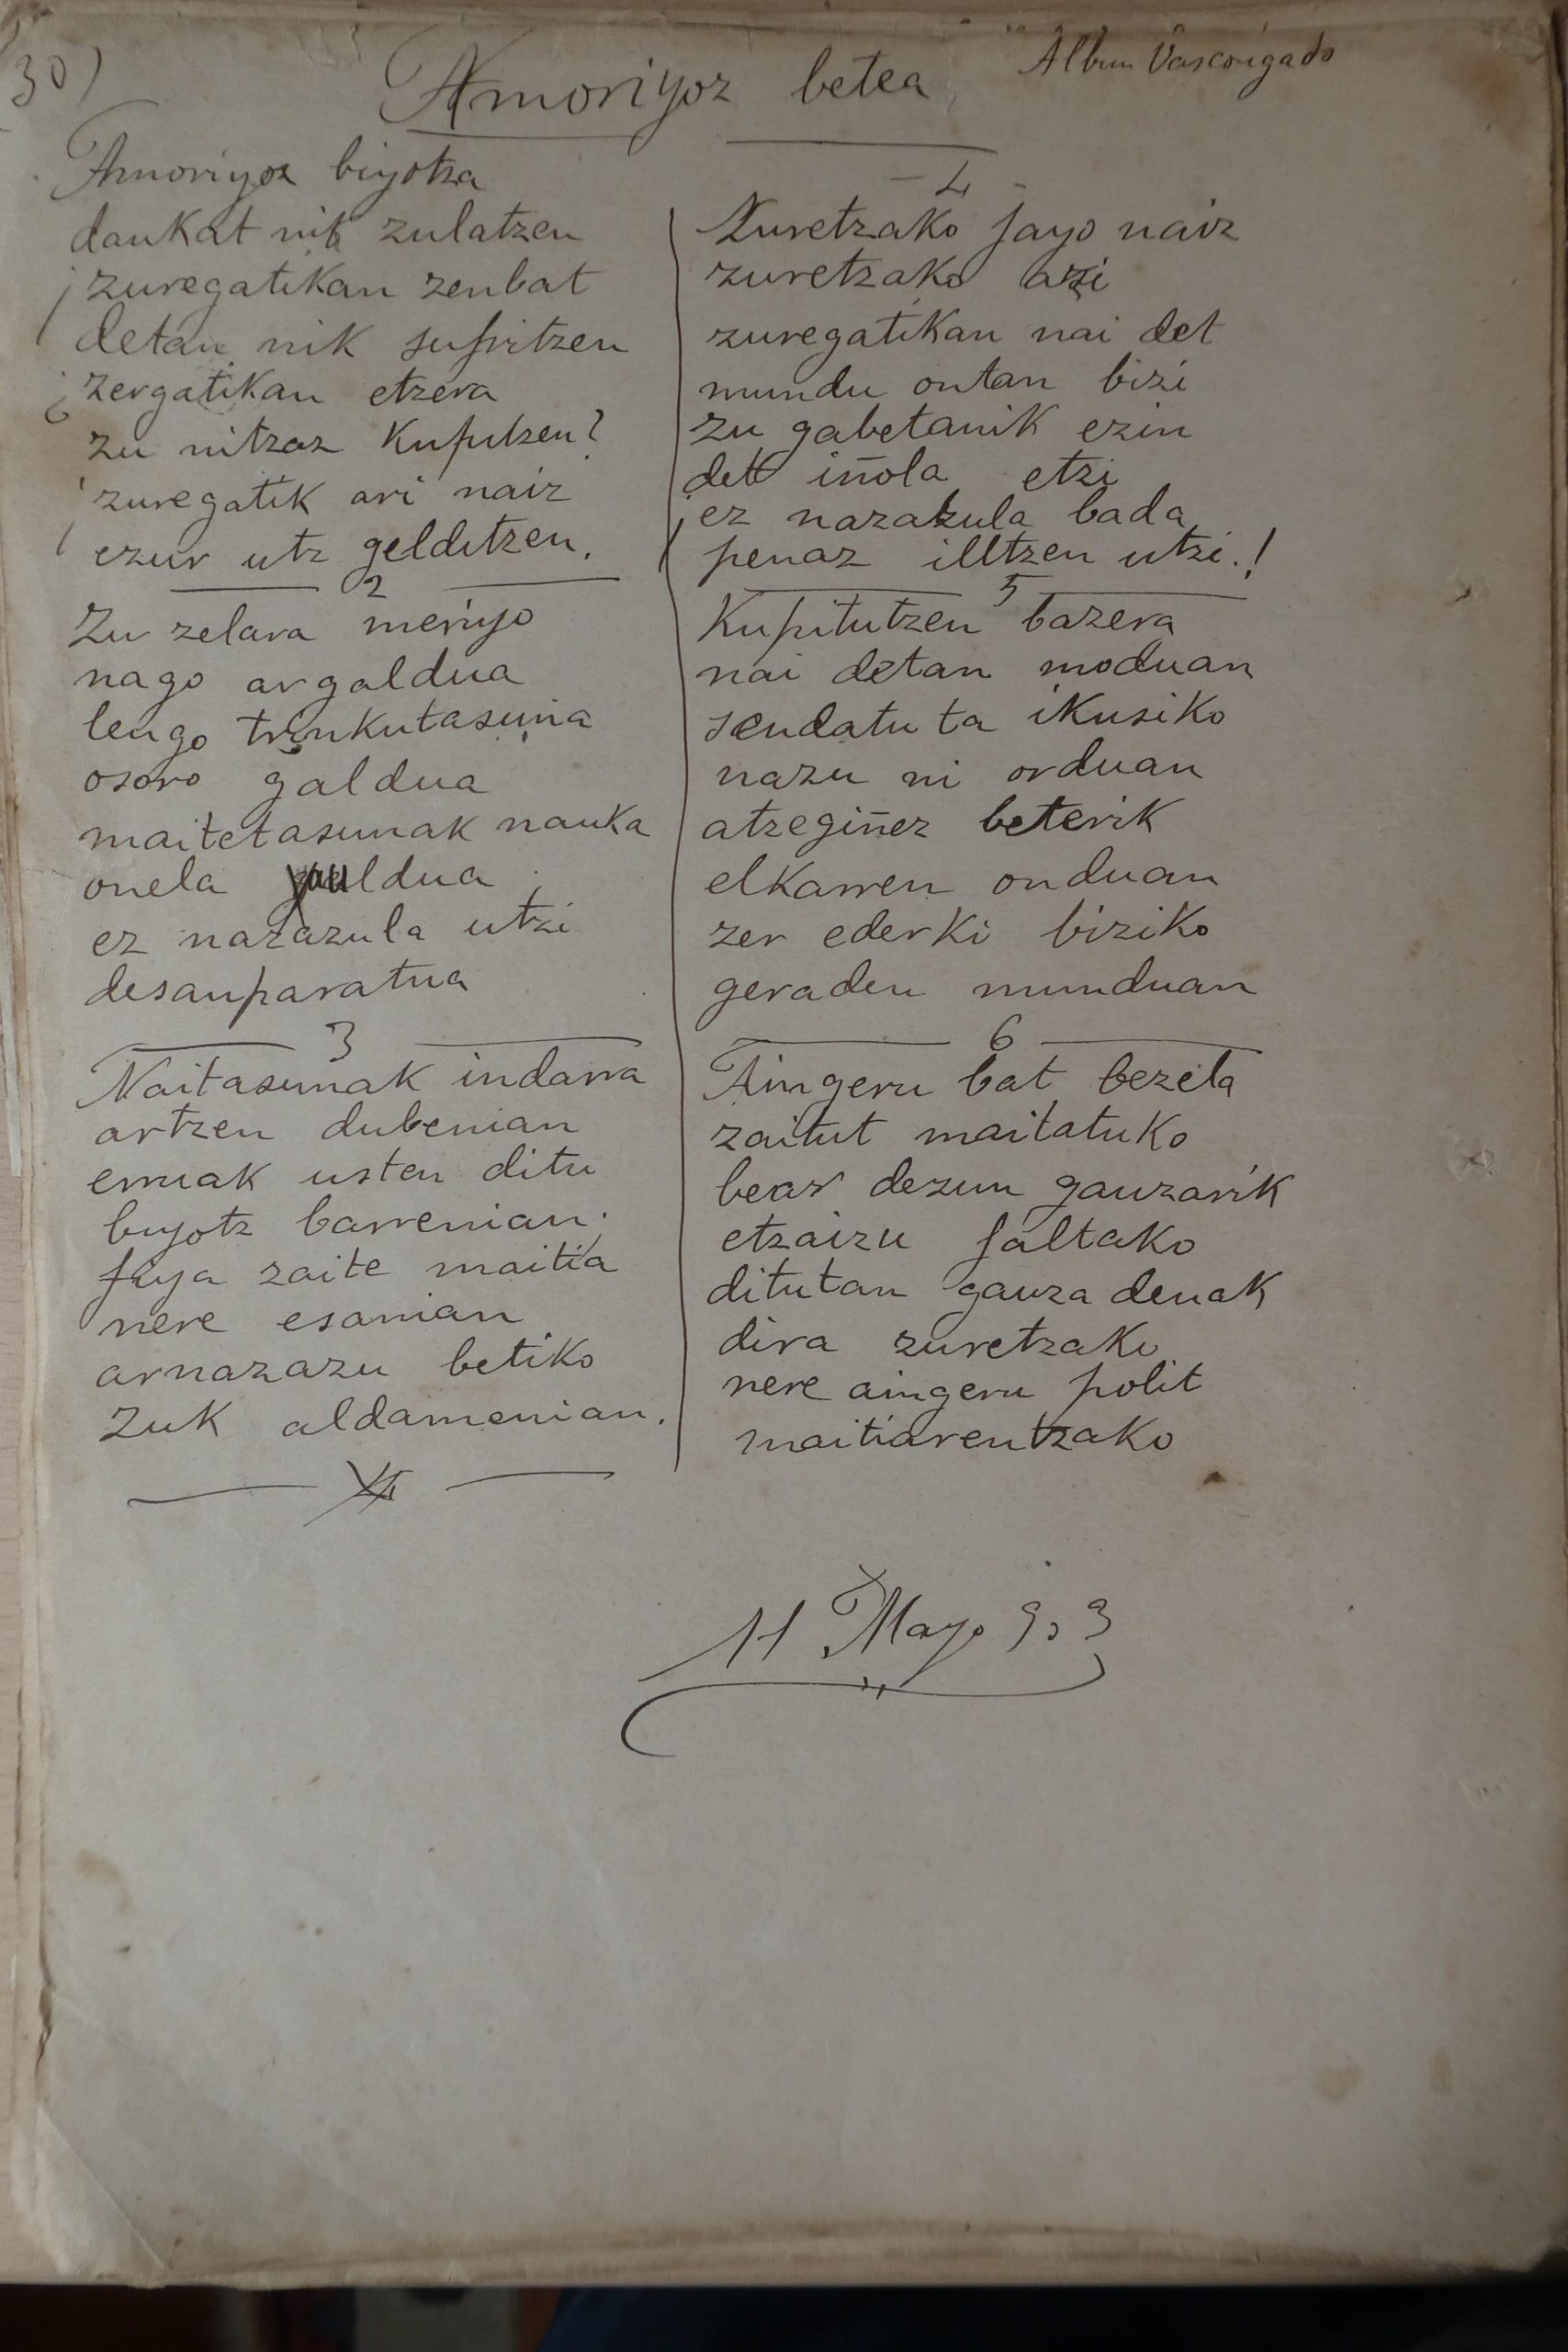 30)
Amoriyoz betea
Album Vascongado
Amoriyoz biyotza
daukat nik zulatzen
¡zuregatikan zenbat
detan nik sufritzen
¿zergatikan etzera
zu nitzaz Kupitzen?
¡zuregatik ari naiz
ezur utz gelditzen.
2
Zu zelara meriyo
nago argaldua
lengo trinkutasuna
osoro galdua
maitetasunak nauka
onela galdua
ez nazazula utzi
desanparatua
3
Naitasunak indarra
artzen dubenian
erruak usten ditu
biyotz barrenian.
fiya zaite maitia
nere esanian
arnazazu betiko
zuk aldamenian.
4
Zuretzako jayo naiz
zuretzako azi
zuregatikan nai det
mundu ontan bizi
zu gabetanik ezin
det iñola etzi
¡ez nazakula bada
penaz illtzen utzi.!
5
Kupitutzen bazera
nai detan moduan
sendatu ta ikusiko
nazu ni orduan
atzegiñez beterik
elkarren onduan
zer ederki biziko
geraden munduan
6
Aingeru bat bezela
zaitut maitatuko
bear dezun gauzarik
etzaizu faltako
ditutan gauza denak
dira zuretzako
nere aingeru polit
maitiarentzako
11 Mayo 903